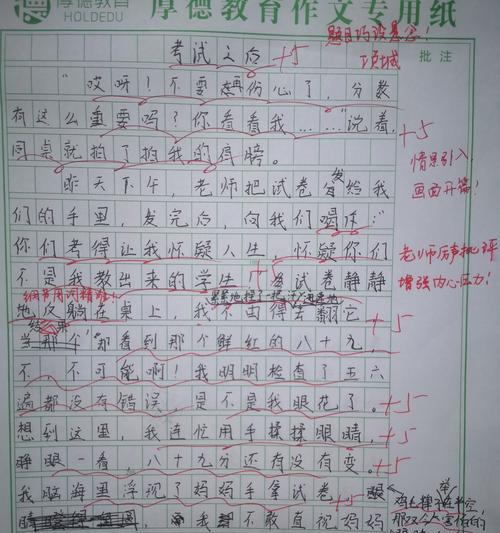 厚德教育 厚德教育作文专用纸
HOLDEDU
题目巧设悬念!
考试之后 +5
批注
"哎呀!不要再伤心了,分数
有这么重要吗?你看看我……"说着,
+5
同桌就拍了拍我的肩膀。
情景引入,
画面开篇!
昨天下午,老师把试卷发给我
们的手里,发完后,向我们喝斥:"
你们考得让我怀疑人生,怀疑你们
老师厉声批评
不是我教出来的学生 +5 试卷静静
增强内心压力!
细节用词精准!
地反躺在桌上,我不由得去翻它
+5
结果
当那个"那看到那个鲜红的八十九,
不、不可能啊!我明明检查了五六
遍都没有错误,是不是我眼花了。+5
想到这里,我连忙用手揉揉眼睛,+5
睁眼一看,八十九分还有没有变。+5
我脑海里浮现了妈妈手拿试卷
睛 我不敢直视妈妈